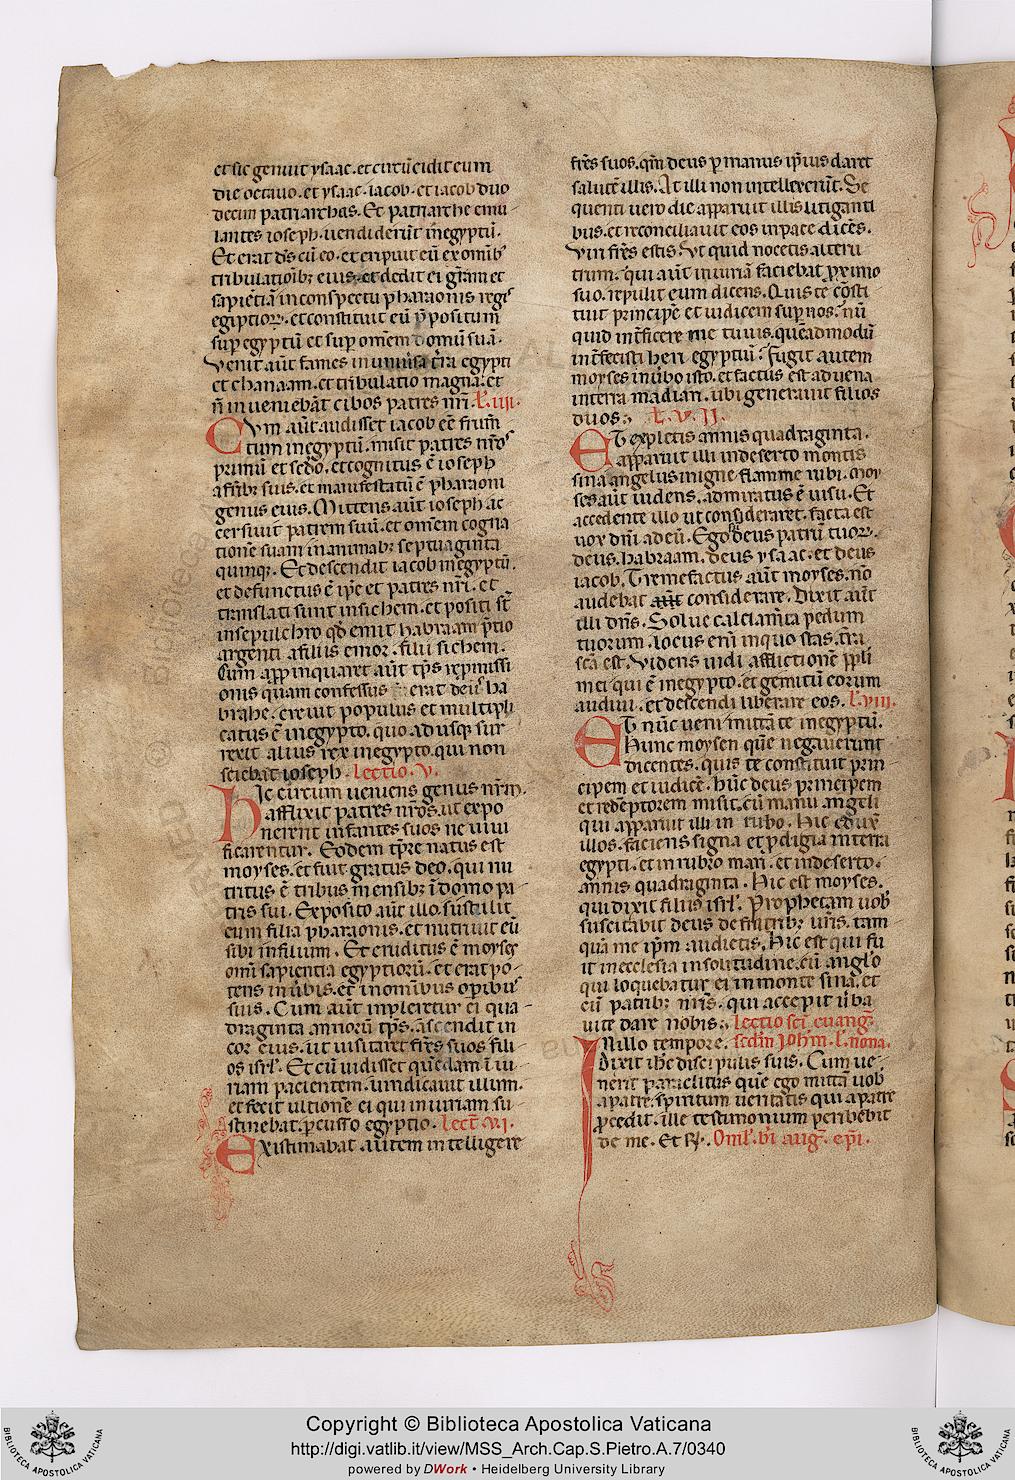 et sic genuit ysaac. et circūcidit eum
die octauo. et ysaac. iacob. et iacob duo
decim patriarchas. Et patriarche emu-
lantes ioseph. uendiderūt inegyptū.
Et erat ds̄ cū eo. et eripuit eū exomīb;
tribulatiōib; eius. et dedit ei gr̄am et
sapiētiā inconspectu pharaonis regis
egiptioꝝ. et constituit eū p̄positum
sup egyptū et sup omēm domū suā.
Venit aūt fames in uniuīsa tr̄ra egypti
et chanaam. et tribulatio magna. et
n̄ inueniebāt cibos patres nr̄i. L̄. iiij.
Cvm aūt audisset iacob eē frum̄
tum inegyptū. misit patres nr̄os
primū et sc̄do. et cognitus ē ioseph
afr̄ib; suis. et manifestatū ē pharaoni
genus eius. Mittens aūt ioseph ac-
cersiuit patrem suū. et om̄em cogna-
tionē suam in animab; septuaginta
quinq;. Et descendit iacob inegyptū.
et defunctus ē ip̄e et patres nr̄i. et
translati sunt insichem. et positi st̄
insepulchro qd̄ emit habraam p̄tio
argenti afiliis emor. filii sichem.
Cum appinquaret aūt tp̄s repmissi
onis quam confessus erat deus ha
brahe. creuit populus et multipli
catus ē inegypto. quo adusq; sur
rexit alius rex inegypto. qui non
sciebat ioseph. lectio. v.
Hic circum ueniens genus nr̄m.
afflixit patres nr̄os. ut expo
nerent infantes suos ne uiui
ficarentur. Eodem tp̄re natus est
moyses. et fuit gratus deo. qui nu
tritus ē tribus mensib; ī domo pa-
tris sui. Exposito aūt illo. sustulit
eum filia pharaonis. et nutriuit eū
sibi infilium. Et eruditus ē moyses
omī sapientia egyptiorū. et erat po-
tens in u̇bis. et inomībus opibus
suis. Cum aūt impleretur ei qua
draginta annorū tp̄s. ascendit in
cor eius. ut uisitaret fr̄es suos fili-
os isr̄l. Et cū uidisset quēdam ī iu-
riam pacientem. uindicauit illum.
et fecit ultionē ei qui iniuriam su-
stinebat. pcusso egyptio. Lect̄. vi.
Existimabat autem intelligere
fr̄es suos. qm̄ deus p manus ip̄ius daret
salutē illis. At illi non intellexerūt. Se
quenti uero die apparuit illis litiganti
bus. et reconciliauit eos inpace dicēs.
Viri fr̄es estis. Vt quid nocetis alteru
trum. qui aūt iniuriā faciebat pximo
suo. repulit eum dicens. Quis te cōsti-
tuit principē et iudicem sup nos. nū
quid int̄ficere me tu uis. quēadmodū
int̄fecisti heri egyptiū? fugit autem
moyses inu̇bo isto. et factus est aduena
interra madian. ubi generauit filios
duos. L̄. v. II.
Et expletis annis quadraginta.
apparuit illi indeserto montis
sina angelus inigne flamme rubi. Moy
ses aūt uidens. admiratus ē uisu. Et
accedente illo ut consideraret. facta est
uox dn̄i ad eū. Ego deus patrū tuoꝝ.
deus. habraam. deus ysaac. et deus
iacob. Tremefactus aūt moyses. nō
audebat considerare. Dixit aūt
illi dn̄s. Solue calciam̄ta pedum
tuorum. locus eni̅ inquo stas. tr̄ra
scā est. Videns uidi afflictionē ppli
mei qui ē inegypto. et gemitū eorum
audiui. et descendi liberare eos. L̄. viii.
Et nūc ueni mittā te inegyptū.
Hunc moysen quē negauerunt
dicentes. quis te constituit prin-
cipem et iudicē. hūc deus principem
et redēptorem misit. cū manu angeli
qui apparuit illi in rubo. Hic eduxit
illos. faciens signa et pdigia interra
egypti. et in rubro mari. et indeserto.
annis quadraginta. Hic est moyses.
qui dixit filiis isr̄l. Prophetam uob̄
suscitabit deus de fr̄ibus ur̄is. tam-
quā me ip̄m audietis. Hic est qui fu
it inecclesia insolitudine. cū angelo
qui loquebatur ei inmonte sina. et
cū patrib; nr̄is. qui accepit u̇ba
uite dare nobis. lectio sc̄i euangl̄.
Inillo tempore. secdm̄ Joh̄m. l̄. nona.
Dixit ih̄c discipulis suis. Cum ue-
nerit paraclitus quē ego mittā uob̄
apatre. spiritum ueritatis qui apatre
pcedit. ille testimonium perhibebit
de me. Et Rl̄. Omil̄. b̄i aug̅. ep̄i.
Copyright © Biblioteca Apostolica Vaticana
http://digi.vatlib.it/view/MSS_Arch.Cap.S.Pietro.A.7/0340
powered by DWork • Heidelberg University Library
BIBLIOTECA APOSTOLICA VATICANA
BIBLIOTECA APOSTOLICA VATICANA